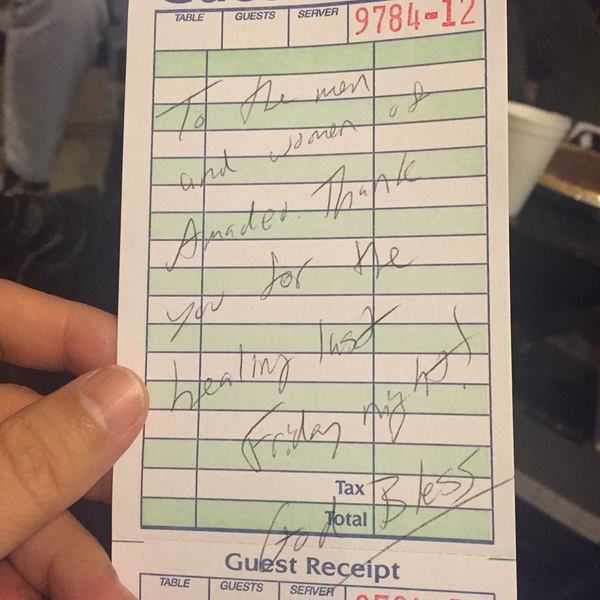 TABLE GUESTS SERVER 9784-12
To the men
and women of
Amadeo. Thank
you for the
healing last
Friday night!
Tax
God Bless
Total
Guest Receipt
TABLE GUESTS SERVER